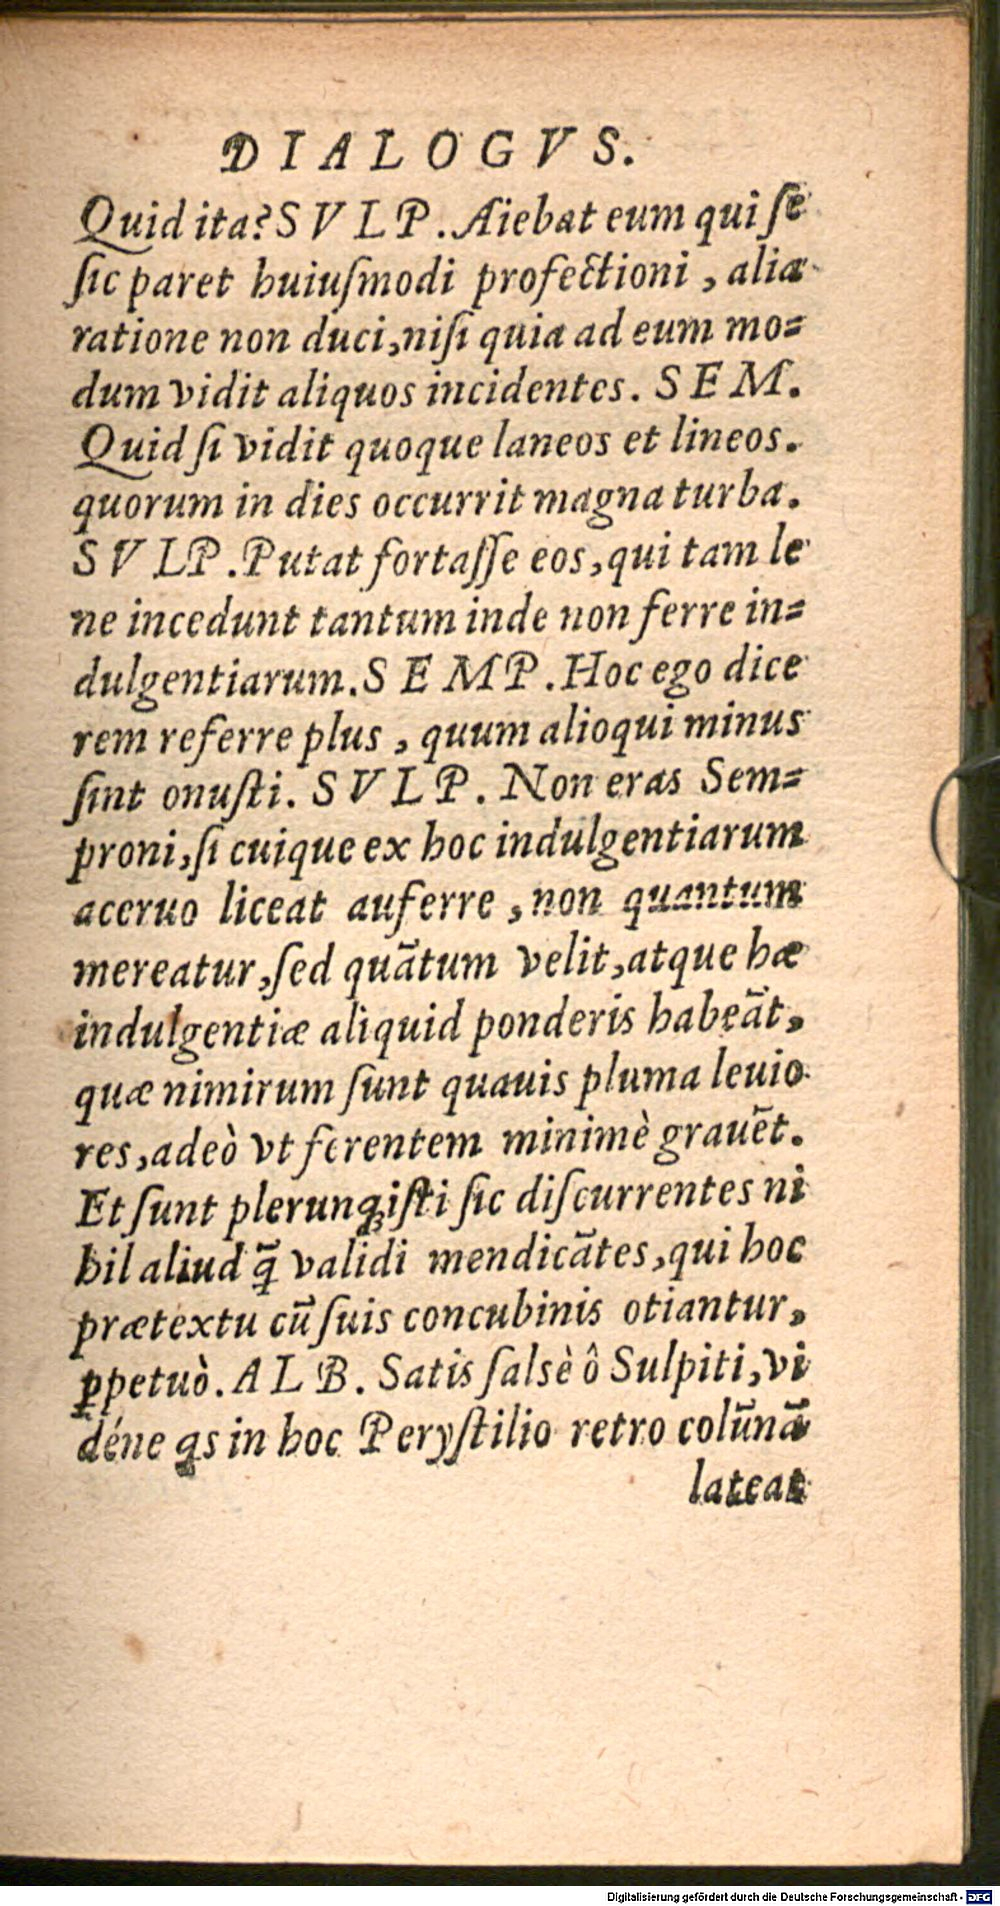 DIALOGVS.
Quid ita? SVLP. Aiebat eum qui ſe
ſic paret huiuſmodi profectioni, alia
ratione non duci, niſi quia ad eum mo=
dum vidit aliquos incidentes. SEM.
Quid ſi vidit quoque laneos et lineos.
quorum in dies occurrit magna turba.
SVLP. Putat fortaſſe eos, qui tam le
ne incedunt tantum inde non ferre in=
dulgentiarum. SEMP. Hoc ego dice
rem referre plus, quum alioqui minus
ſint onuſti. SVLP. Non eras Sem=
proni, ſi cuique ex hoc indulgentiarum
aceruo liceat auferre, non quantum
mereatur, ſed quãtum velit, atque hæ
indulgentiæ aliquid ponderis habeãt,
quæ nimirum ſunt quauis pluma leuio
res, adeò vt ferentem minimè grauẽt.
Et ſunt plerunqꝫ iſti ſic diſcurrentes ni
hil aliud q̃ validi mendicãtes, qui hoc
prætextu cũ ſuis concubinis otiantur,
ꝑpetuò. ALB. Satis ſalsè ô Sulpiti, vi
déne qs in hoc Peryſtilio retro colũnã
lateat
Digitalisierung gefördert durch die Deutsche Forschungsgemeinschaft - DFG